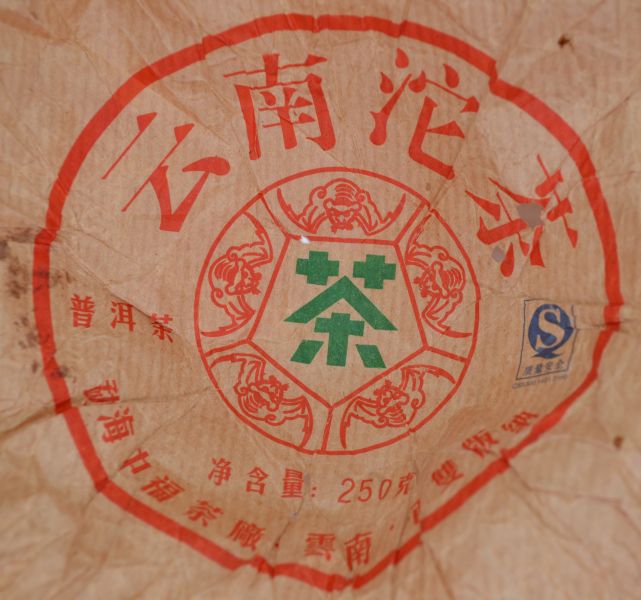 云南沱茶
茶
普洱茶
净含量：250克
勐海巾福茶廠·雲南·
雙版納
S
质量安全